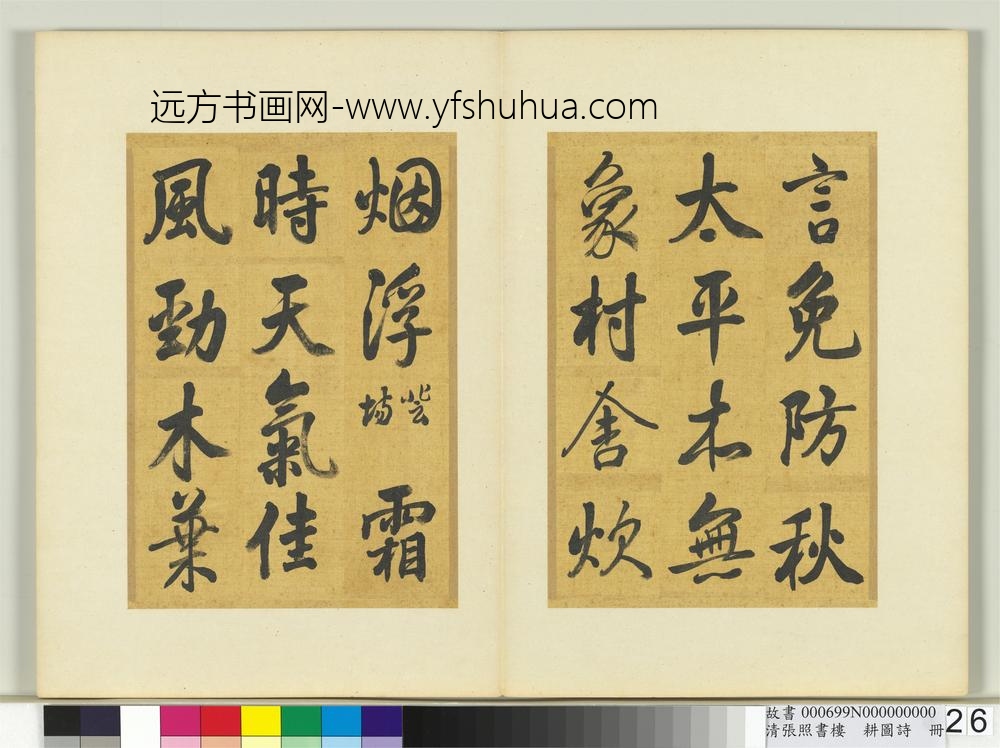 远方书画网-www.yfshuhua.com
言免防秋
太平本無
象村舍炊
烟浮登場霜
時天氣佳
風勁木葉
故書 000699N000000000
清張照書樓 耕圖詩 冊
26